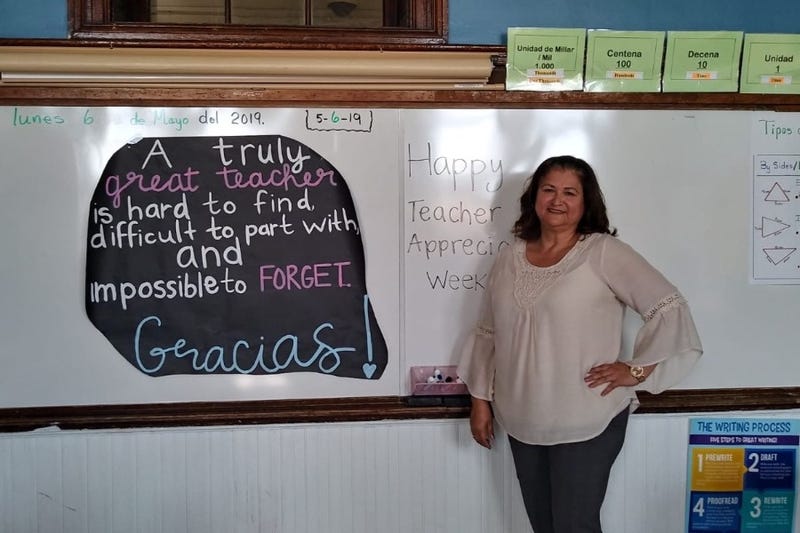 Unidad de Millar
/ Mil
1.000
Thousands
Centena
100
Hundreds
Decena
10
Tens
Unidad
1
lunes 6 de Mayo del 2019.
5-6-19
A truly
great teacher
is hard to find,
difficult to part with,
and
impossible to FORGET.
Gracias!
Happy
Teacher
Apprecia
Week
Tipos
By Sides/
THE WRITING PROCESS
FIVE STEPS TO GREAT WRITING!
1 PREWRITE
2 DRAFT
4 PROOFREAD
3 REWRITE